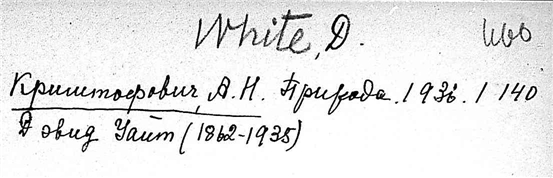 White, D.
Криштофович, А.Н. Природа. 1936. 1 140
Дэвид Уайт (1862-1935)